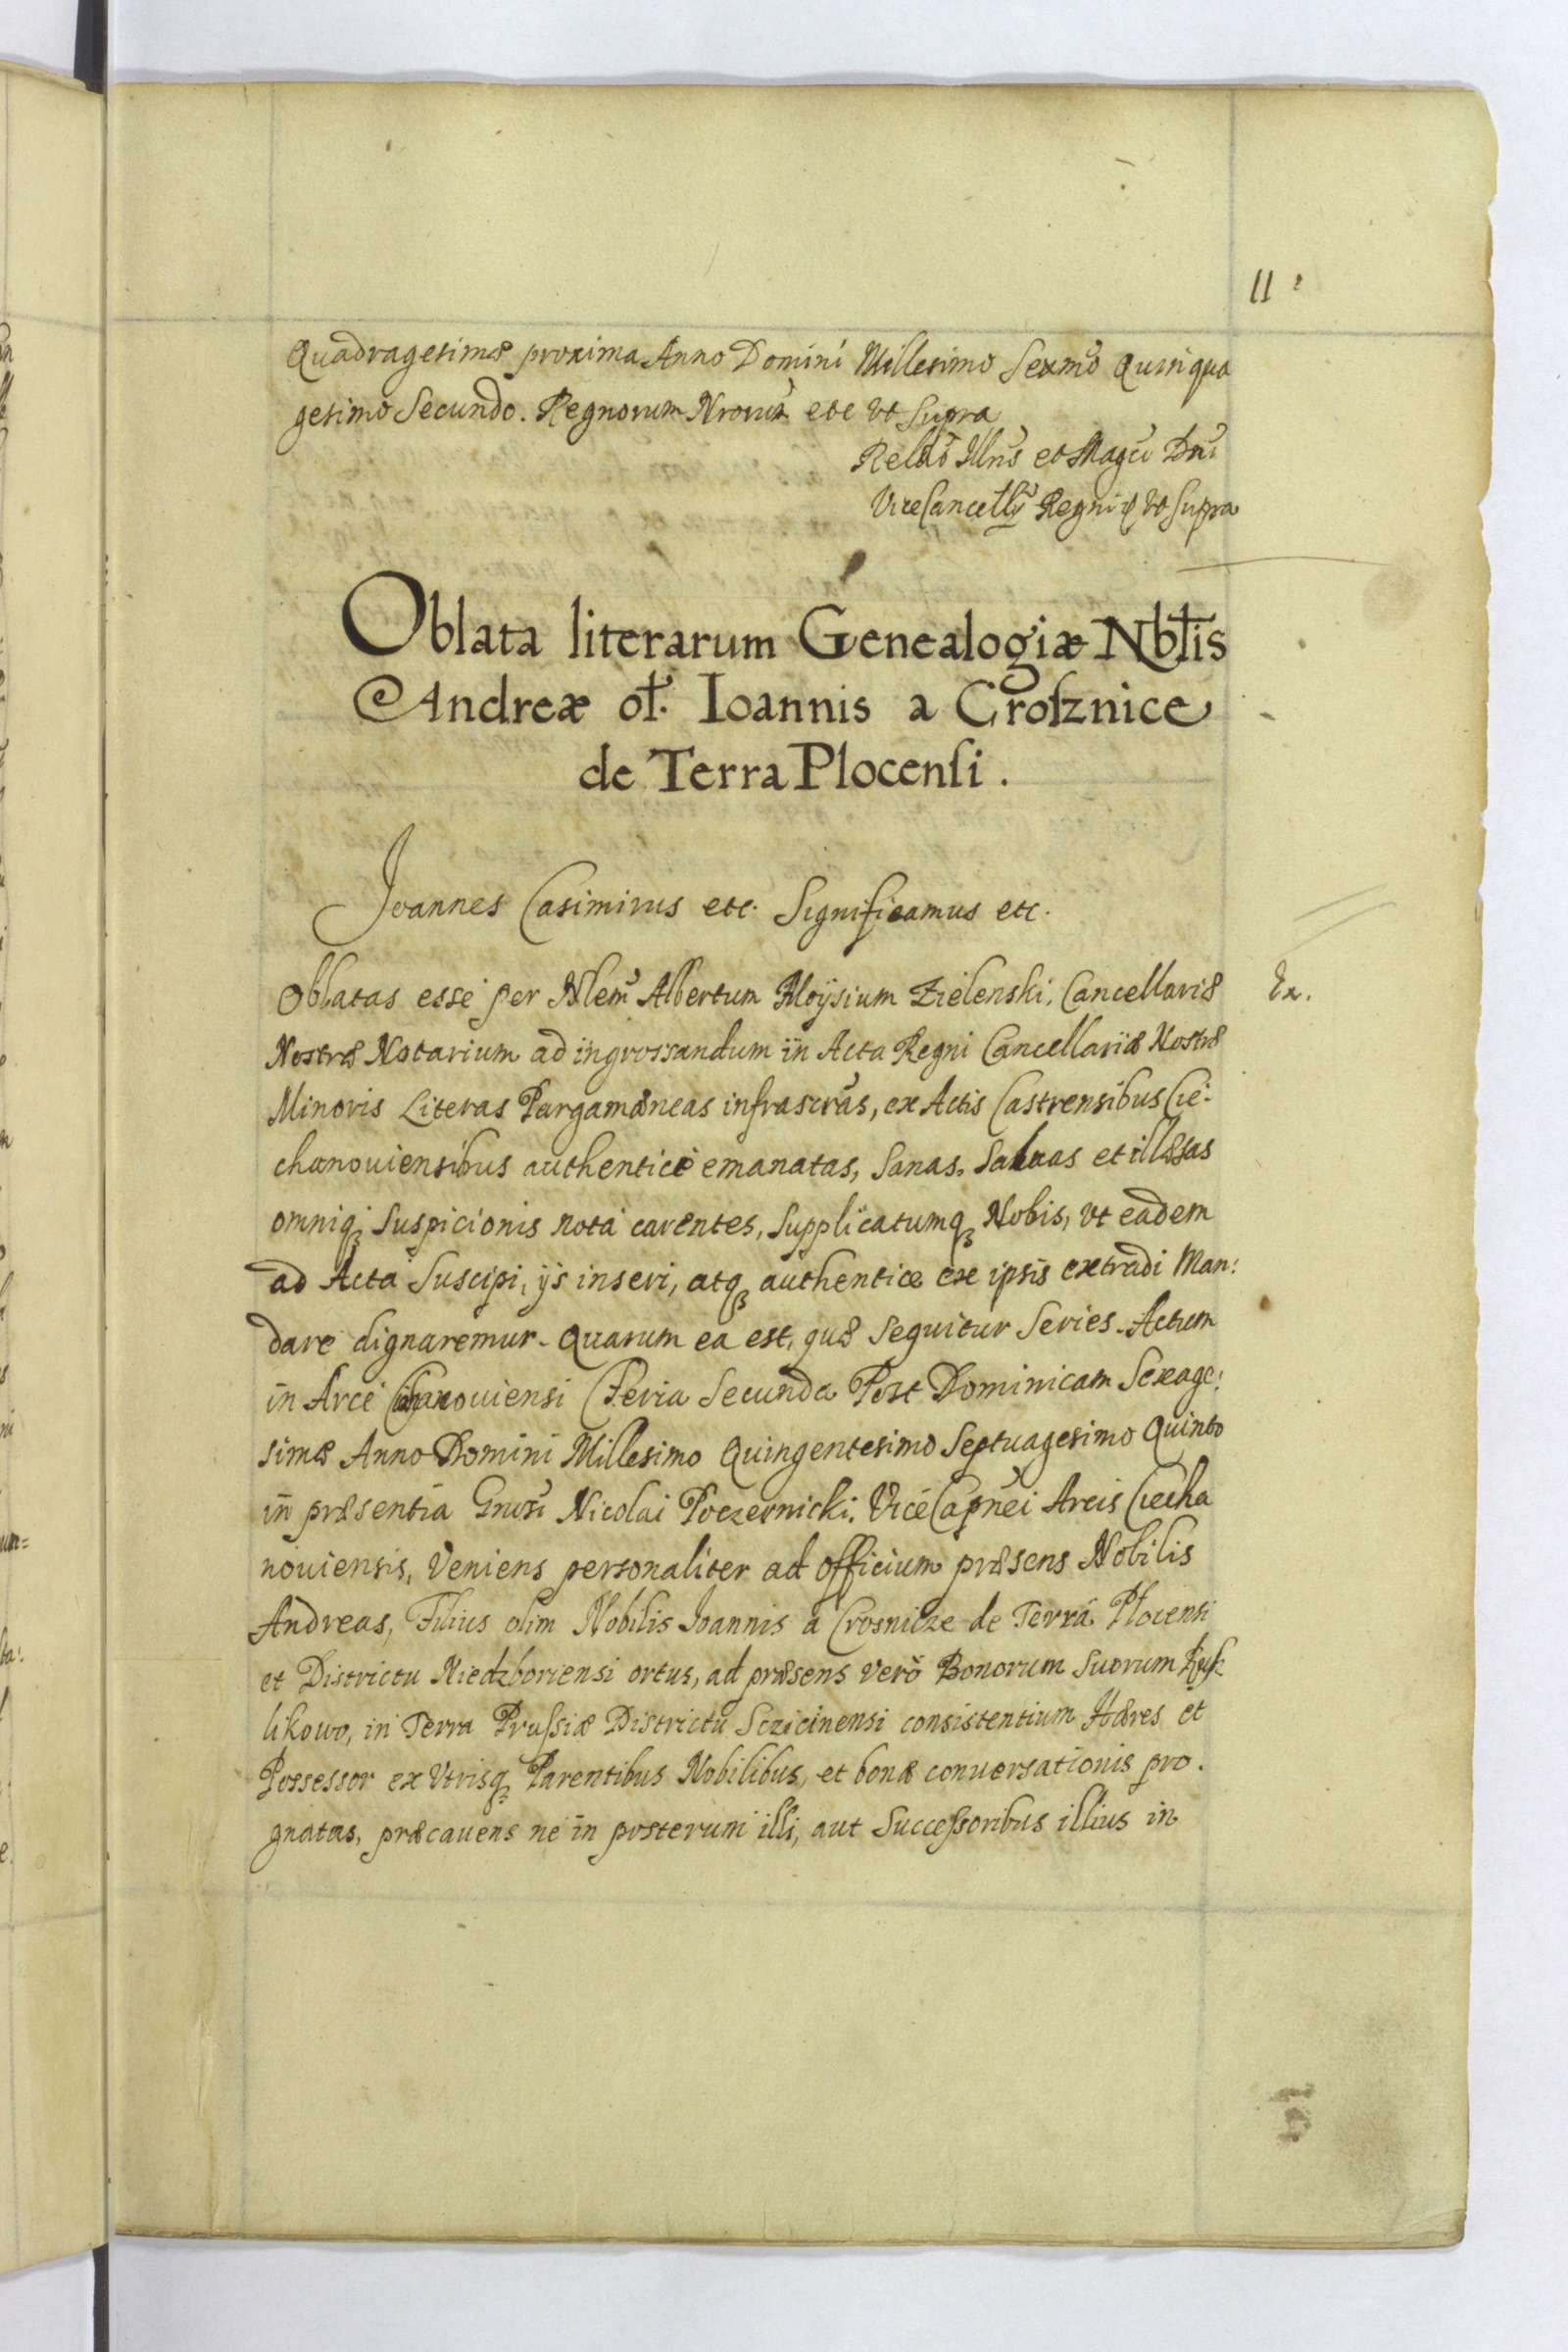 11
Quadragesimæ proxima Anno Domini Millesimo Sexmo Quinqua
gesimo Secundo. Regnorum Nrorum etc vt supra
Relatio Illris et Magci Dni
ViceCancellarij Regni vt supra
Oblata literarum Genealogiæ Nbłis
Andreæ oł. Ioannis a Crosznice
de Terra Plocensi.
Joannes Casimirus etc. Significamus etc.
Oblatas esse per Nblem Albertum Aloysium Zielenski, Cancellariæ
Ex.
Nostræ Notarium ad ingrossandum in Acta Regni Cancellariæ Nostræ
Minoris Literas Pargamæneas infrascras, ex Actis Castrensibus Cie-
chanouiensibus authenticè emanatas, sanas, saluas et illæsas
omniq; suspicionis notâ carentes, supplicatumq; Nobis, vt eadem
ad Acta suscipi, ijs inseri, atq; authentice ex ipsis extradi Man:
dare dignaremur. Quarum ea est, quæ sequitur series. Actum
in Arce Ciechanouiensi Feria Secunda Post Dominicam Sexage:
simæ Anno Domini Millesimo Quingentesimo Septuagesimo Quinto
in præsentia Gnosi Nicolai Poczernicki, ViceCapnei Arcis Ciecha
nouiensis, Veniens personaliter ad officium præsens Nobilis
Andreas, Filius olim Nobilis Joannis à Crosnicze de Terrâ Plocensi
et Districtu Niedzboriensi ortus, ad præsens verò Bonorum Suorum
likowo, in Terra Prussiæ Districtu Sczicinensi consistentium Hæres et
Possessor ex Vtrisq; Parentibus Nobilibus, et bonæ conuersationis pro.
gnatas, præcauens ne in posterum illi, aut Successoribus illius in